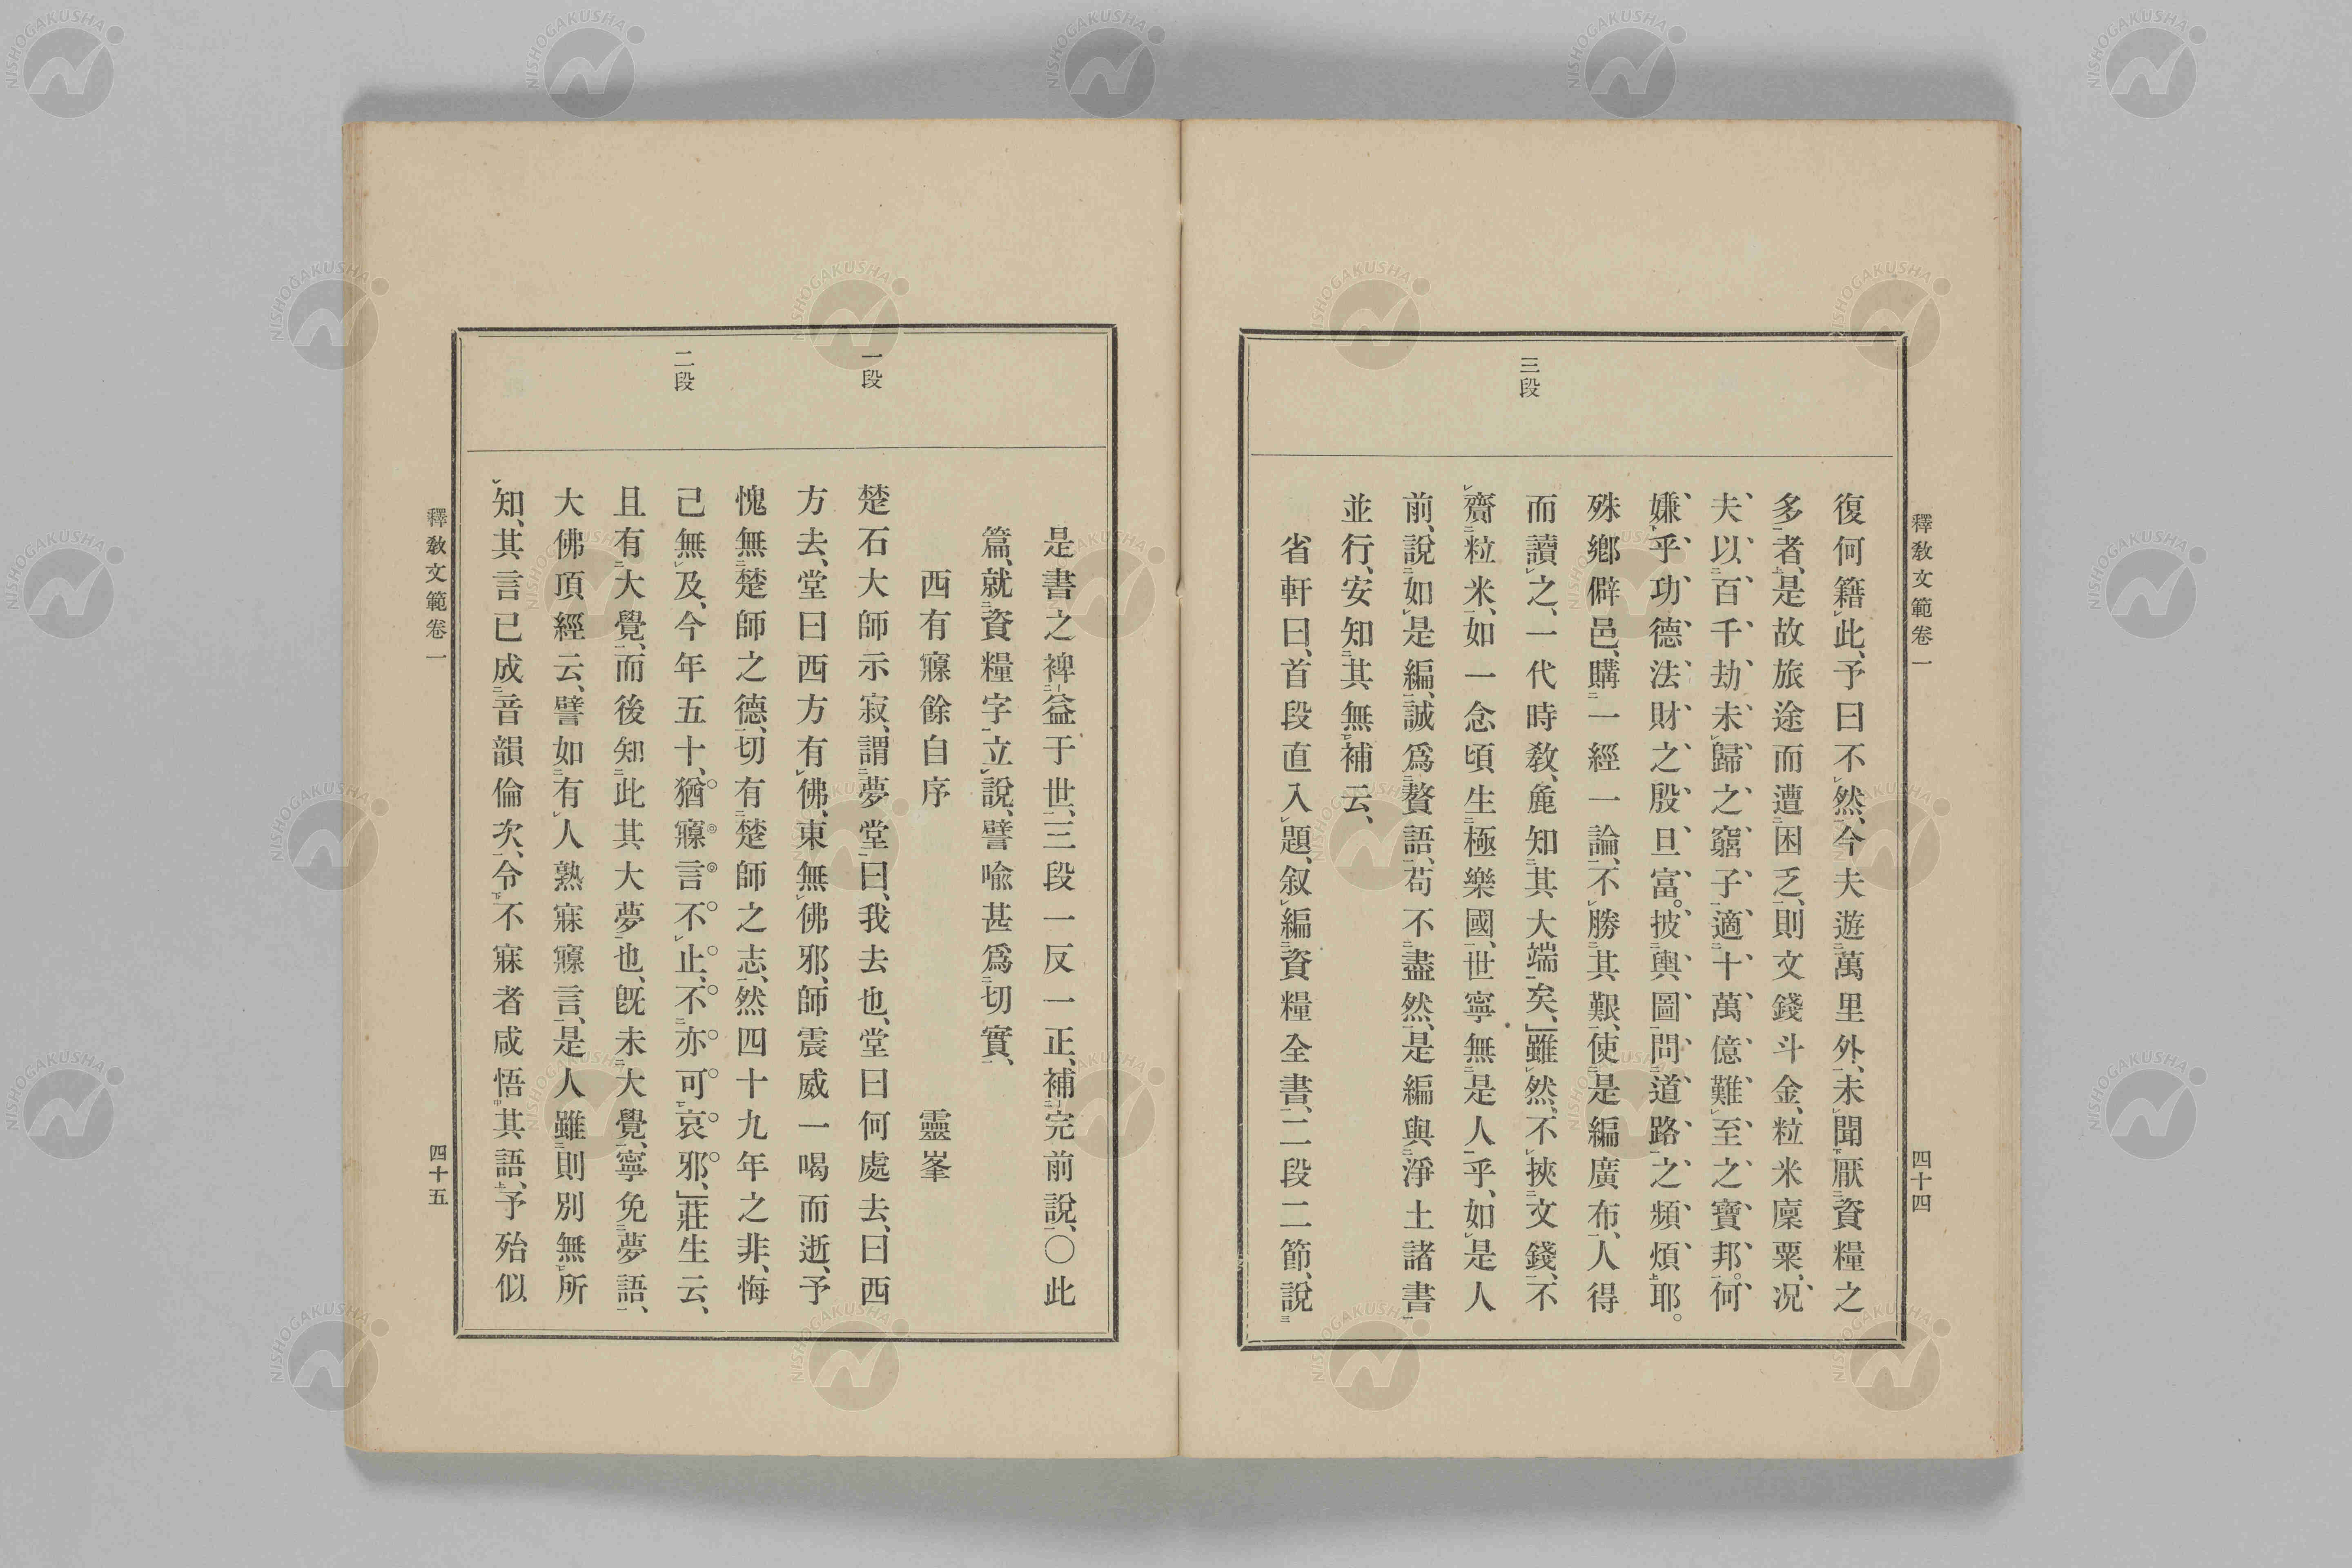 釋教文範卷一
四十四
三段
復何籍此、予曰不然、今夫遊萬里外、未聞厭資糧之
多者、是故旅途而遭困乏、則文錢斗金、粒米廩粟、况
夫以百千劫未歸之窮子、適十萬億難至之寶邦。何
嫌乎功德法財之殷旦富。披輿圖問道路之頻煩耶。
殊鄉僻邑、購一經一論、不勝其艱、使是編廣布、人得
而讀之、一代時教、麁知其大端矣、」雖然、不挾文錢、不
齎粒米、如一念頃生極樂國、世寧無是人乎、如是人
前、說如是編、誠爲贅語、苟不盡然、是編與淨土諸書
並行、安知其無補云、
省軒曰、首段直入題、叙編資糧全書、二段二節、說
一段
二段
是書之裨益于世、三段一反一正、補完前說、〇此
篇、就資糧字立說、譬喩甚爲切實、
西有寱餘自序 靈峯
楚石大師示寂、謂夢堂曰、我去也、堂曰何處去、曰西
方去、堂曰西方有佛、東無佛邪、師震威一喝而逝、予
愧無楚師之德、切有楚師之志、然四十九年之非、悔
己無及、今年五十、猶寱言不止、不亦可哀邪、」莊生云、
且有大覺、而後知此其大夢也、旣未大覺、寧免夢語、
大佛頂經云、譬如有人熟寐寱言、是人雖則別無所
知、其言已成音韻倫次、令不寐者咸悟其語、予殆似
釋教文範卷一
四十五